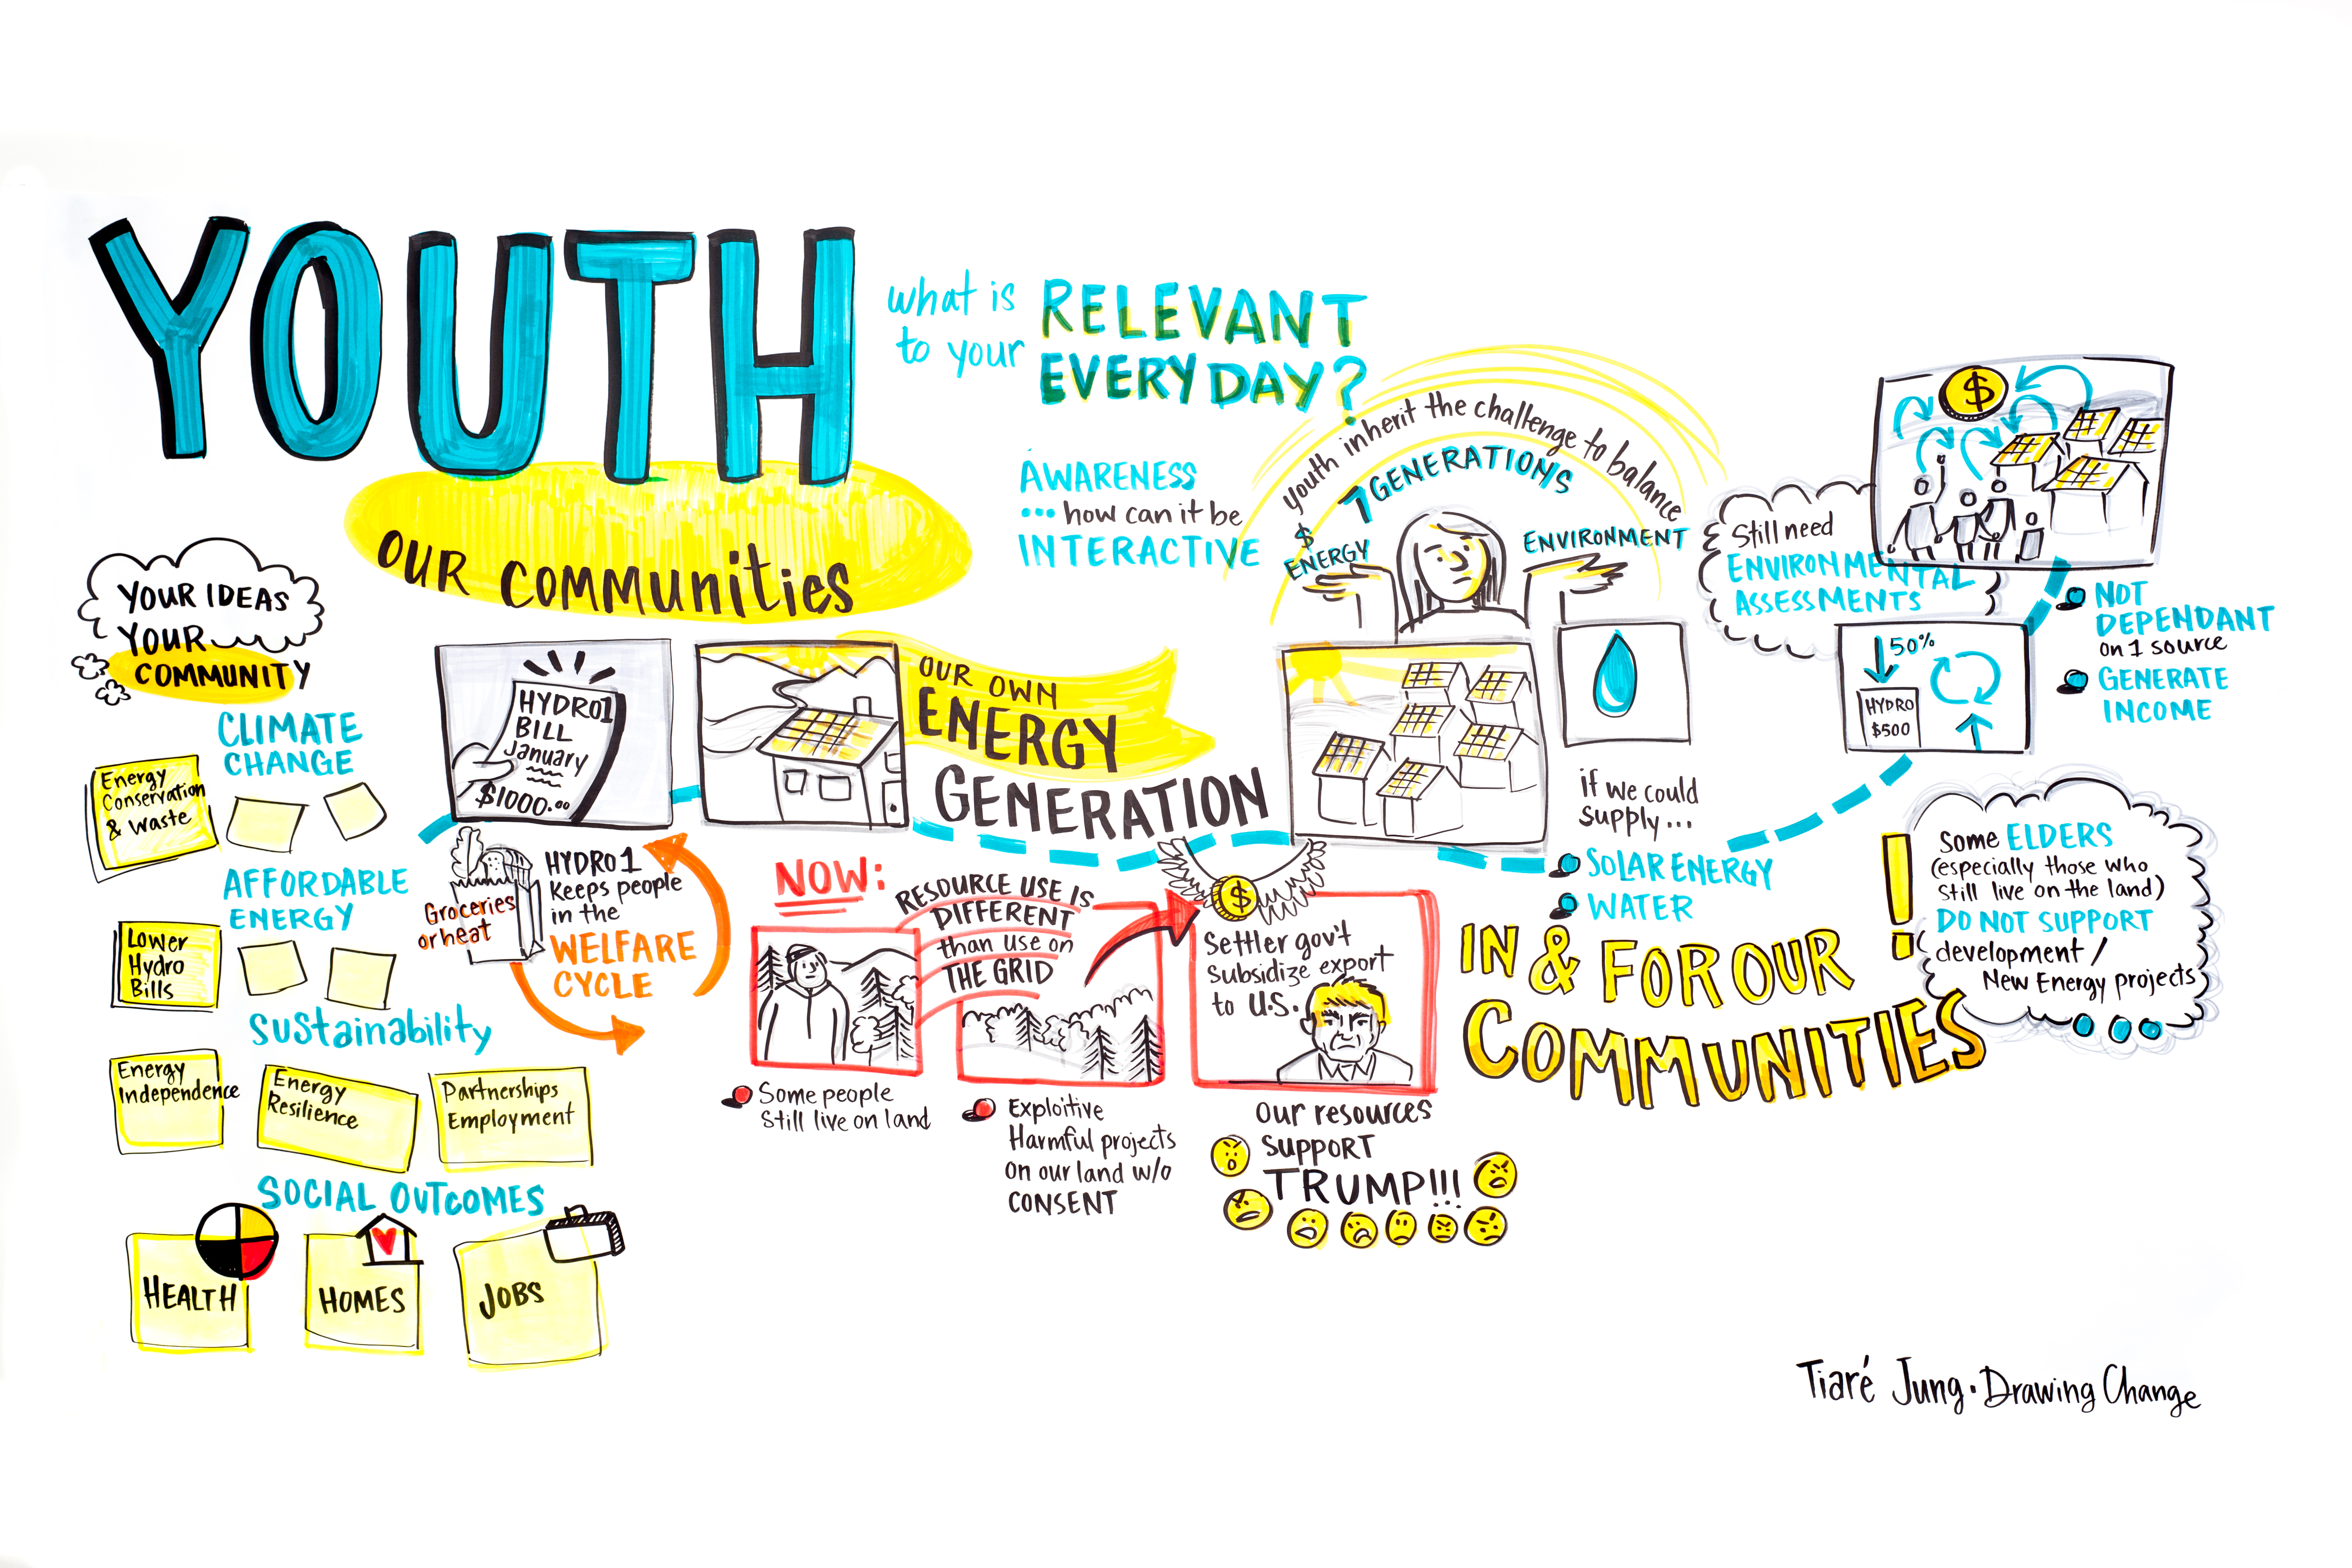 YOUTH
OUR COMMUNITIES
what is
to your
RELEVANT
EVERYDAY?
AWARENESS
... how can it be
INTERACTIVE
youth inherit the challenge to balance
7 GENERATIONS
$
ENERGY
ENVIRONMENT
Still need
ENVIRONMENTAL
ASSESSMENTS
$
NOT
DEPENDANT
on 1 source
GENERATE
INCOME
50%
HYDRO
$500
YOUR IDEAS
YOUR
COMMUNITY
CLIMATE
CHANGE
Energy
Conservation
& Waste
AFFORDABLE
ENERGY
Lower
Hydro
Bills
Sustainability
Energy
Independence
Energy
Resilience
Partnerships
Employment
SOCIAL OUTCOMES
HEALTH
HOMES
JOBS
HYDRO1
BILL
January
$1000.00
Groceries
or heat
HYDRO 1
Keeps people
in the
WELFARE
CYCLE
OUR OWN
ENERGY
GENERATION
NOW:
RESOURCE USE IS
DIFFERENT
than use on
THE GRID
Some people
Still live on land
Exploitive
Harmful projects
on our land w/o
CONSENT
$
Settler gov't
Subsidize export
to U.S.
Our resources
SUPPORT
TRUMP!!!
if we could
supply...
SOLAR ENERGY
WATER
IN & FOR OUR
COMMUNITIES
!
Some ELDERS
(especially those who
still live on the land)
DO NOT SUPPORT
development /
New Energy projects
Tiaré Jung · Drawing Change